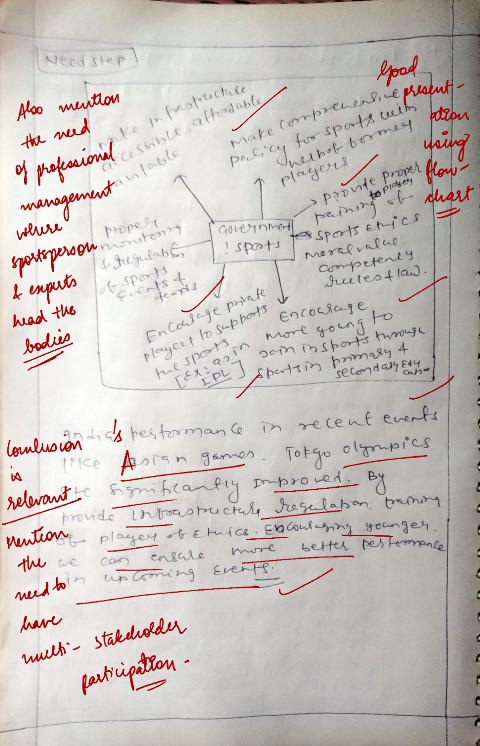 Need step
Also mention
the need
of professional
management
where
sportsperson
& experts
head the
bodies
Good
present-
ation
using
flow-
chart
make infrastructure
accessible, affordable
available
Make comprehensive
policy for sports with
help of former
players
provide proper
training of player
sports Ethics
moral value.
competency
rules & law.
Government
! sports
proper
monitoring
& regulation
of sports
events &
Encourage private
player to supports
the sports
[Ex: as in
IPL]
Encourage
more young to
join in sports through
sports in primary &
secondary Edu
cation
India's performance in recent events
like Asian games. Tokyo olympics
significantly improved. By
provide infrastructure, regulation, training
of player of Ethics. Encouraging younger.
we can ensure more better performance
in upcoming events.
Conclusion
is
relevant
Mention
the
need to
have
multi-stakeholder
participation.